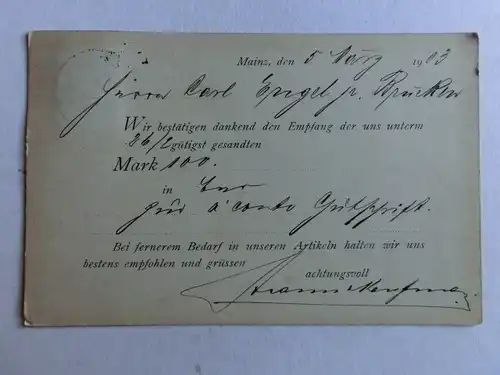 Mainz, den 5 März 1903
Herrn Carl Engel jr. Brücken
Wir bestätigen dankend den Empfang der uns unterm
26/2 gütigst gesandten
Mark 100.
in
für à conto Gutschrift.
Bei fernerem Bedarf in unseren Artikeln halten wir uns
bestens empfohlen und grüssen
achtungsvoll